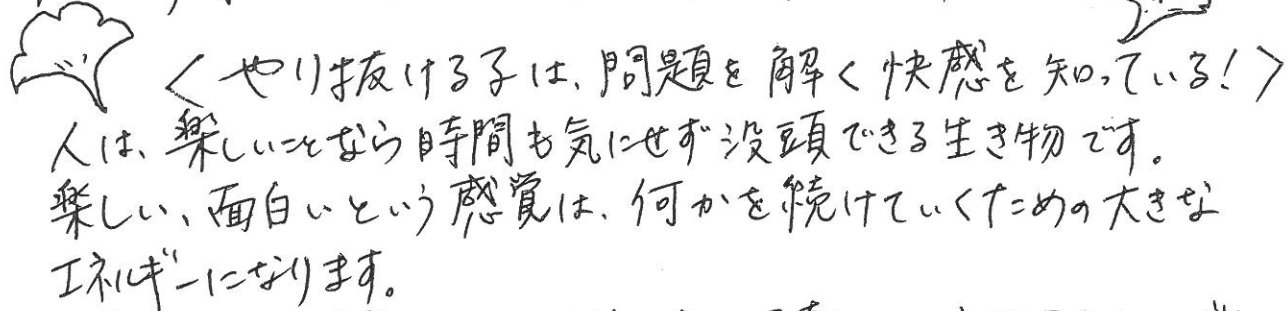 <やり抜ける子は、問題を解く快感を知っている!>
人は、楽しいことなら時間も気にせず没頭できる生き物です。
楽しい、面白いという感覚は、何かを続けていくための大きな
エネルギーになります。